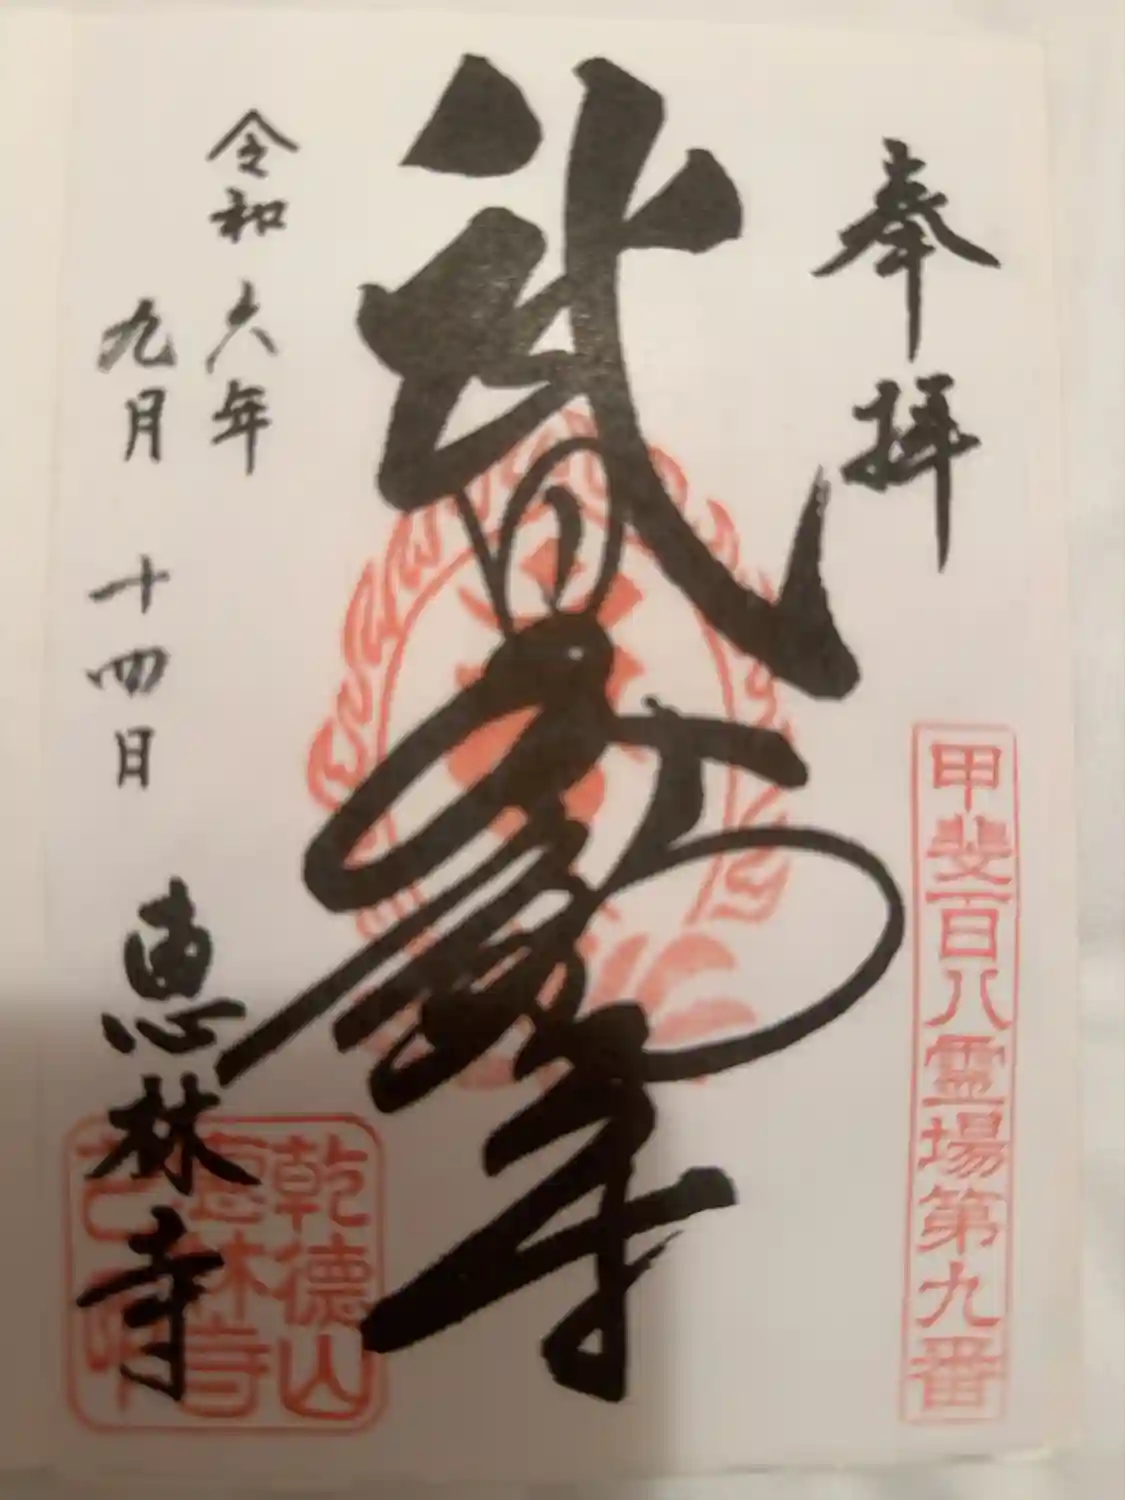 奉拝
甲斐百八霊場第九番
令和六年
九月十四日
恵林寺
乾徳山
恵林寺